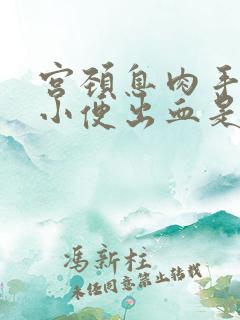 宫颈息肉手
小便出血是
冯新柱
未经同意禁止转载